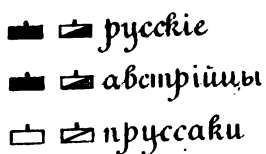 русскіе
австрійцы
пруссаки